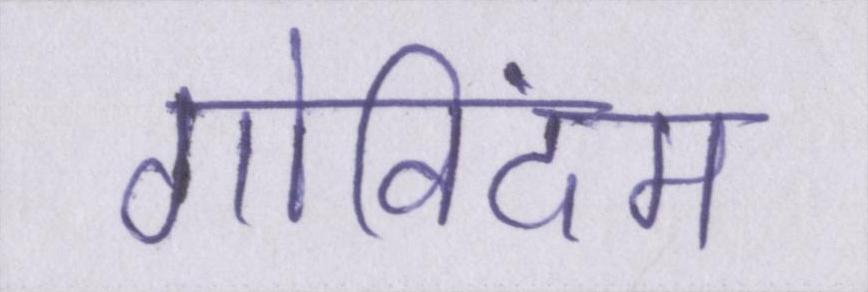 गोविदंम